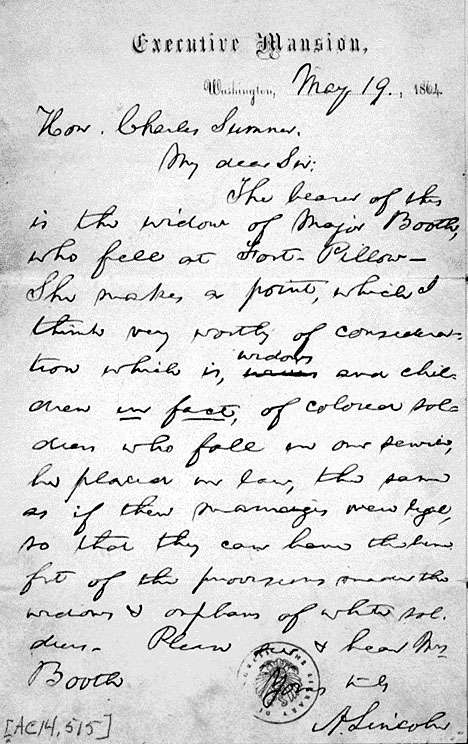 Executive Mansion,
Washington, May 19, 1864.
Hon. Charles Sumner,
My dear Sir:
The bearer of this
is the widow of Major Booth,
who fell at Fort-Pillow-
She makes a point, which I
think very worthy of considera-
tion which is, widows and chil-
dren in fact, of colored sol-
diers who fall in our service,
be placed in law, the same
as if their marriages were legal,
so that they can have the bene-
fit of the provisions made the
widows & orphans of white sol-
diers- Please see & hear Mrs
Booth
Yours truly
A. Lincoln
[AC14,515]